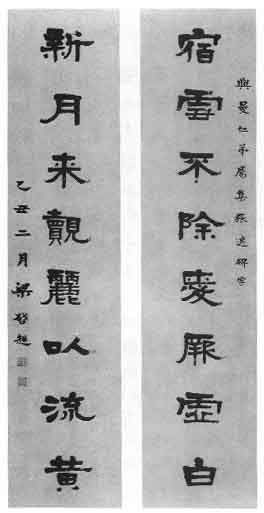 興曼仁弟屬集張遷碑字
宿雲不除愛厥虛白
新月来覿麗以流黄
乙丑二月梁啓超